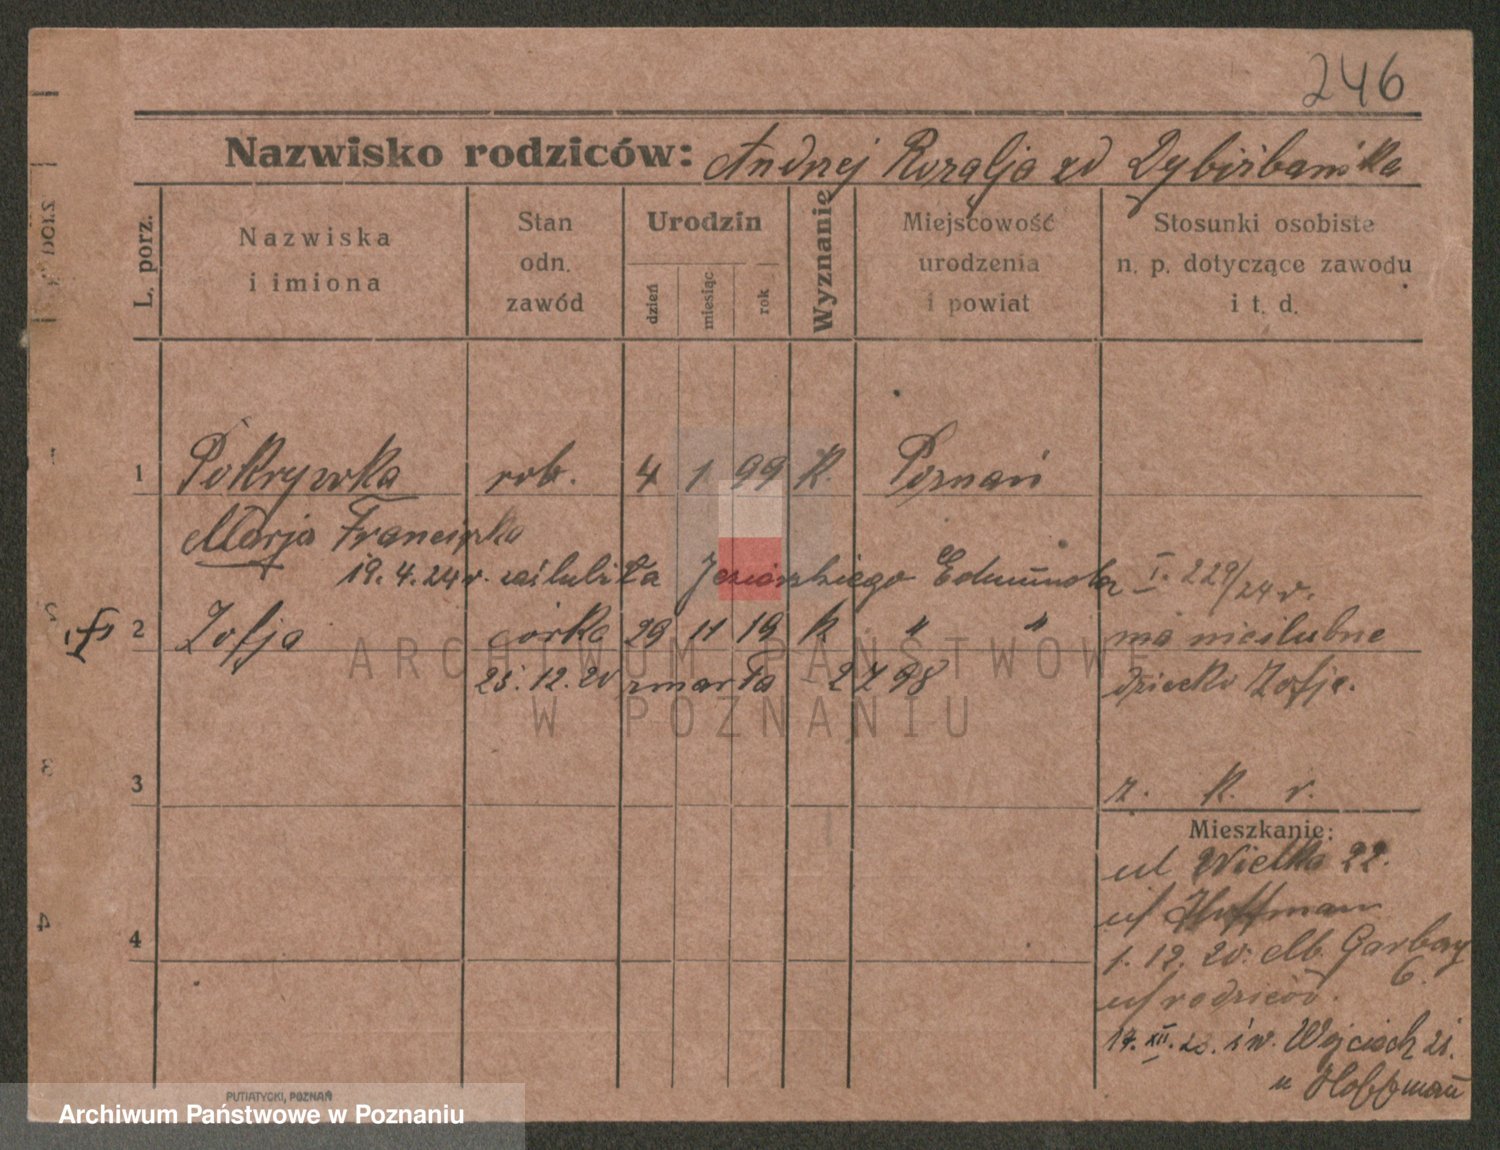 246
Nazwisko rodziców: Andrzej Rozalja zd
L. porz.
Nazwiska i imiona
Stan odn. zawód
Urodzin
dzień
miesiąc
rok
Wyznanie
Miejscowość urodzenia i powiat
Stosunki osobiste n. p. dotyczące zawodu i t. d.
1 Pokrywka rob. 4 1 99 K. Poznań
Marja Franciszka
19.4.24r. zaślubiła Edmunda I. 229/24 r.
2 Zofja córka 29 11 19 k " " ma nieślubne
25.12.20 zmarła 2798 dziecko Zofję.
3
z. K. r.
Mieszkanie:
ul Wielka 22.
u/ Hoffman
4
1.12.20. Garbary 6.
u/ rodziców.
XII. 20. św. Wojciech
u Hoffman
PUTIATYCKI, POZNAŃ
ARCHIWUM PAŃSTWOWE
W POZNANIU
Archiwum Państwowe w Poznaniu